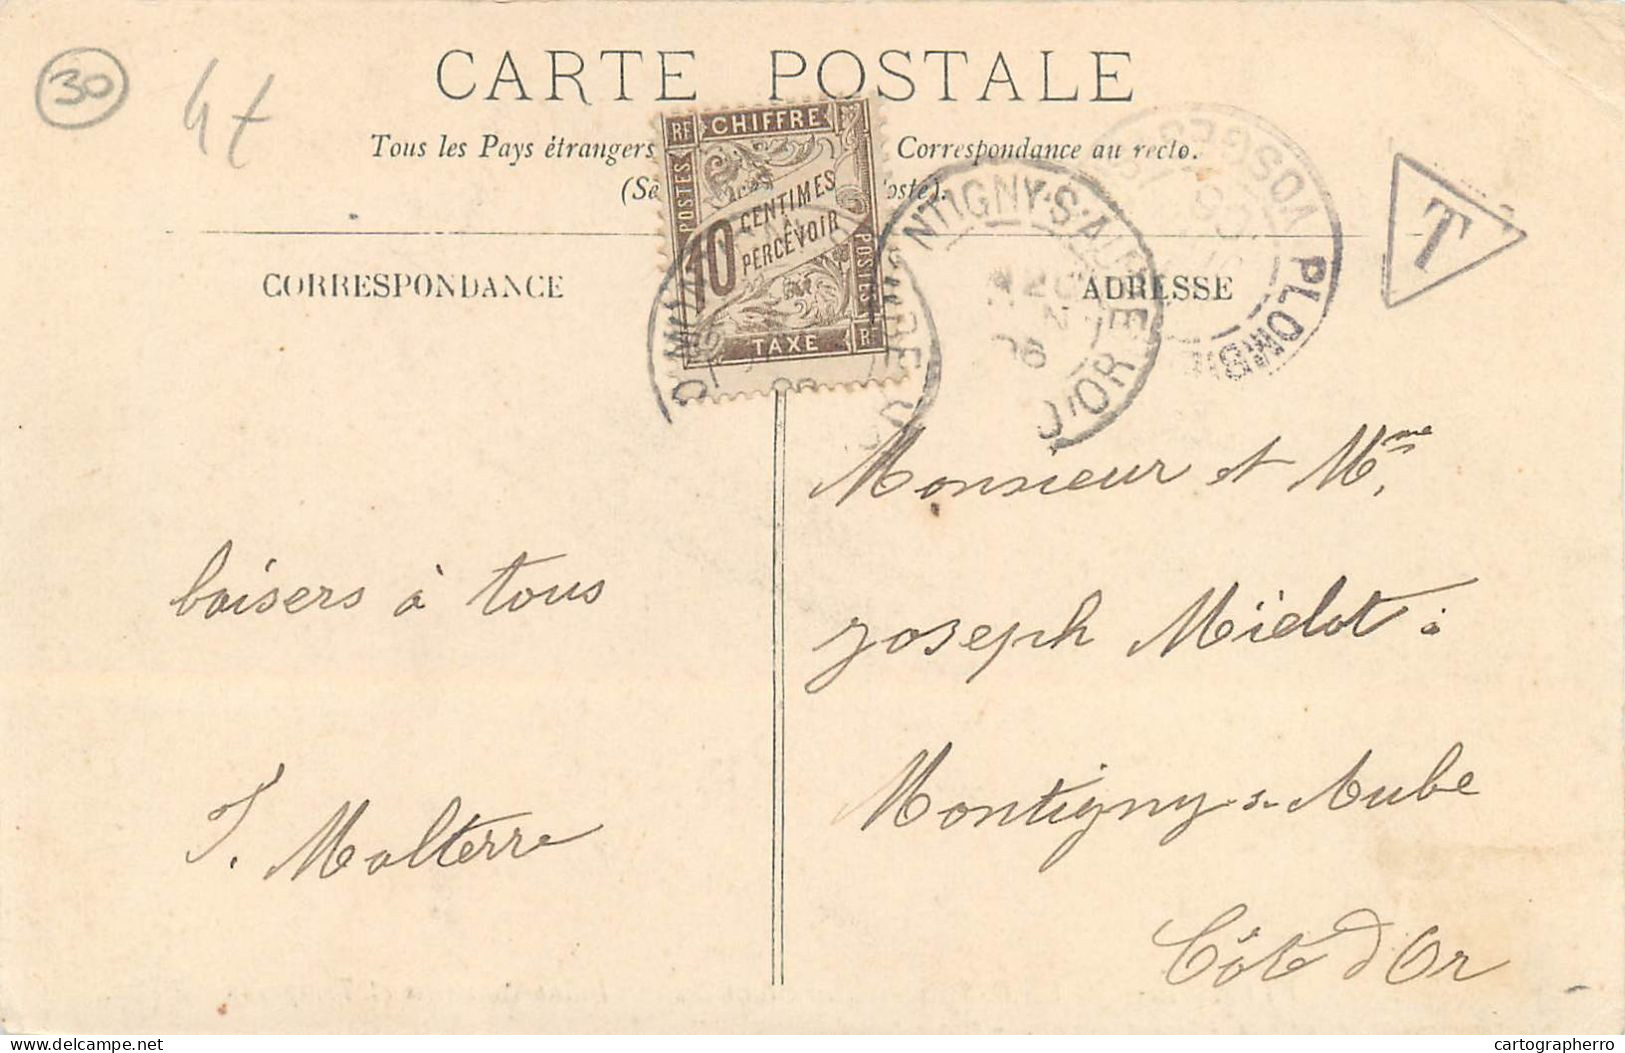 30
47
CARTE POSTALE
Tous les Pays étrangers Correspondance au recto.
(Se oste).
RF CHIFFRE
POSTES
10 CENTIMES
À
PERCEVOIR
POSTES
TAXE RF
NTIGNY-S-AUBE
06
D'OR
PLOMB
VOSGES
T
CORRESPONDANCE
ADRESSE
baisers à tous
J. Malterre
Monsieur et Mme.
Joseph Mïelot à
Montigny-s-Aube
Côte d'Or
delcampe.net
cartographerro